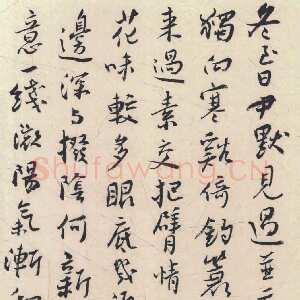 冬至日尹默見過並
獨向寒谿倚釣蓑
来過素交把臂情
花味較多眼底
邊深与撥陰何新
意一綫微陽氣漸和
Shufawang.CN